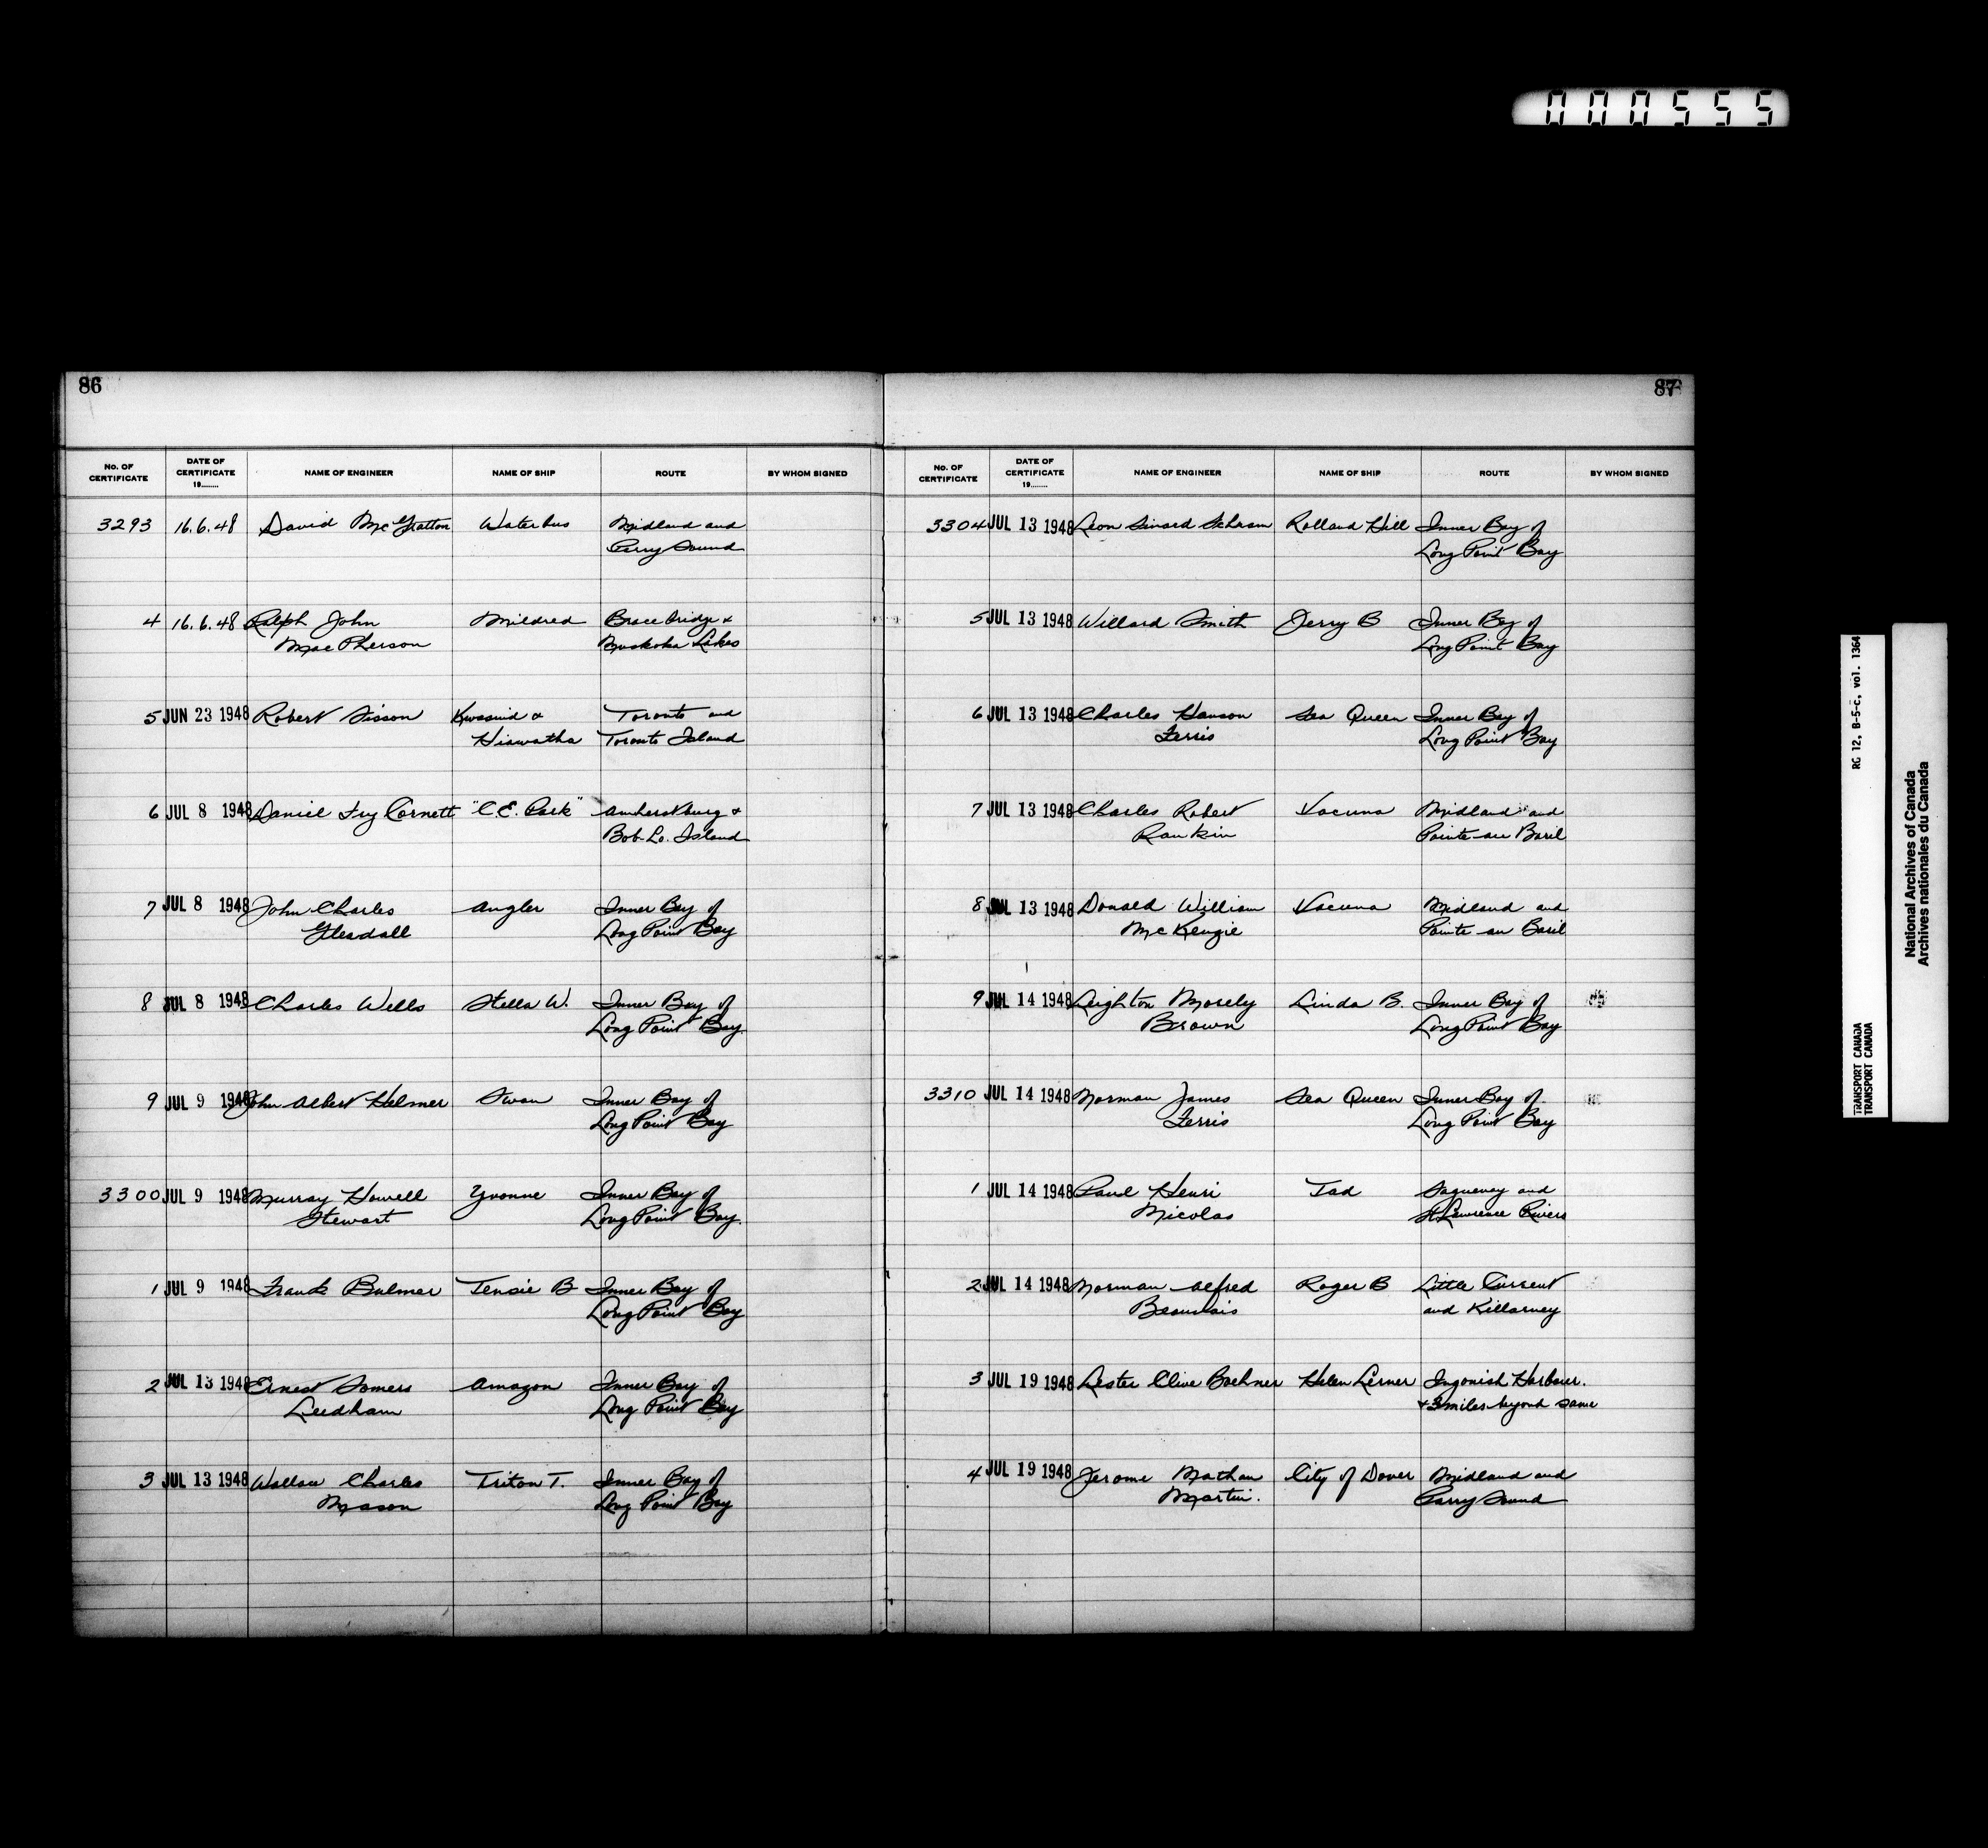 000555
86
No. OF CERTIFICATE DATE OF CERTIFICATE 19........ NAME OF ENGINEER NAME OF SHIP ROUTE BY WHOM SIGNED
3293 16.6.48 David McGratton Waterbus Midland and
Parry Sound
4 16.6.48 Ralph John Mildred Bracebridge &
MacPherson Muskoka Lakes
5 JUN 23 1948 Robert Sisson Kwasind & Toronto and
Hiawatha Toronto Island
6 JUL 8 1948 Daniel Fry Cornett "C.E. Park" Amherstburg &
Bob-Lo. Island
7 JUL 8 1948 John Charles Angler Inner Bay of
Gleadall Long Point Bay
8 JUL 8 1948 Charles Wells Stella W. Inner Bay of
Long Point Bay.
9 JUL 9 1948 John Albert Helmer Swan Inner Bay of
Long Point Bay
3300 JUL 9 1948 Murray Howell Yvonne Inner Bay of
Stewart Long Point Bay.
1 JUL 9 1948 Frank Bulmer Tensie B Inner Bay of
Long Point Bay
2 JUL 13 1948 Ernest Somers Amazon Inner Bay of
Leedham Long Point Bay
3 JUL 13 1948 Wallace Charles Triton T. Inner Bay of
Mason Long Point Bay
87
No. OF CERTIFICATE DATE OF CERTIFICATE 19........ NAME OF ENGINEER NAME OF SHIP ROUTE BY WHOM SIGNED
3304 JUL 13 1948 Leon Schram Rolland Hill Inner Bay of
Long Point Bay
5 JUL 13 1948 Willard Smith Jerry B Inner Bay of
Long Point Bay
6 JUL 13 1948 Charles Hanson Sea Queen Inner Bay of
Ferris Long Point Bay
7 JUL 13 1948 Charles Robert Vacuna Midland and
Rankin Pointe-au Baril
8 JUL 13 1948 Donald William Vacuna Midland and
McKenzie Pointe-au Baril
9 JUL 14 1948 Leighton Mosely Linda B. Inner Bay of
Brown Long Point Bay
3310 JUL 14 1948 Norman James Sea Queen Inner Bay of
Ferris Long Point Bay
1 JUL 14 1948 Paul Henri Tad Saguenay and
Nicolas St Lawrence Rivers
2 JUL 14 1948 Norman Alfred Roger B Little Current
Beauvais and Killarney
3 JUL 19 1948 Lester Clive Boehner Helen Lerner Ingonish Harbour.
& 3 miles beyond same
4 JUL 19 1948 Jerome Nathan City of Dover Midland and
Martin. Parry Sound
RG 12, B-5-c, vol. 1364
TRANSPORT CANADA
TRANSPORT CANADA
National Archives of Canada
Archives nationales du Canada